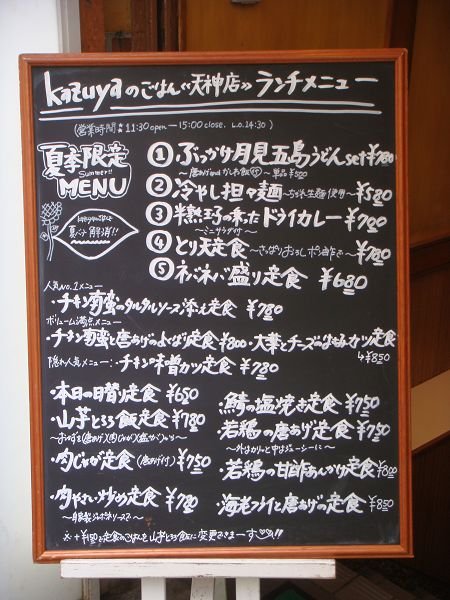 kazuyaのごはん《天神店》ランチメニュー
(営業時間★11:30open—15:00close. L.O.14:30)
夏季限定
Summer!!
MENU
夏バテ解消!!
① ぶっかけ月見五島うどんset ¥780
~唐あげandかしわ飯付~ 単品¥500
② 冷やし担々麺~ちぢれ生麺使用~¥580
③ 半熟玉子の乗ったドライカレー ¥700
~ミニサラダ付~
④ とり天定食~さっぱりおろしポン酢で~ ¥780
⑤ ネバネバ盛り定食 ¥680
人気No.1メニュー
・チキン南蛮のタルタルソース添え定食 ¥780
ボリューム満点メニュー
・チキン南蛮と唐あげのよくばり定食 ¥800
・大葉とチーズのはさみカツ定食
¥850
隠れ人気メニュー:・チキン味噌カツ定食 ¥780
・本日の日替り定食 ¥650
・山芋とろろ飯定食 ¥780
~おかずを(唐あげ)(肉じゃが)(塩さば)から~
・肉じゃが定食(唐あげ付) ¥750
・肉やさい炒め定食 ¥780
~自家製ジャポネソースで~
・鯖の塩焼き定食 ¥750
・若鶏の唐あげ定食 ¥750
~外はカリッと中はジューシーに~
・若鶏の甘酢あんかけ定食 ¥800
・海老フライと唐あげの定食 ¥850
※+¥150で定食のごはんを山芋とろろ飯に変更できま—す♡♡!!